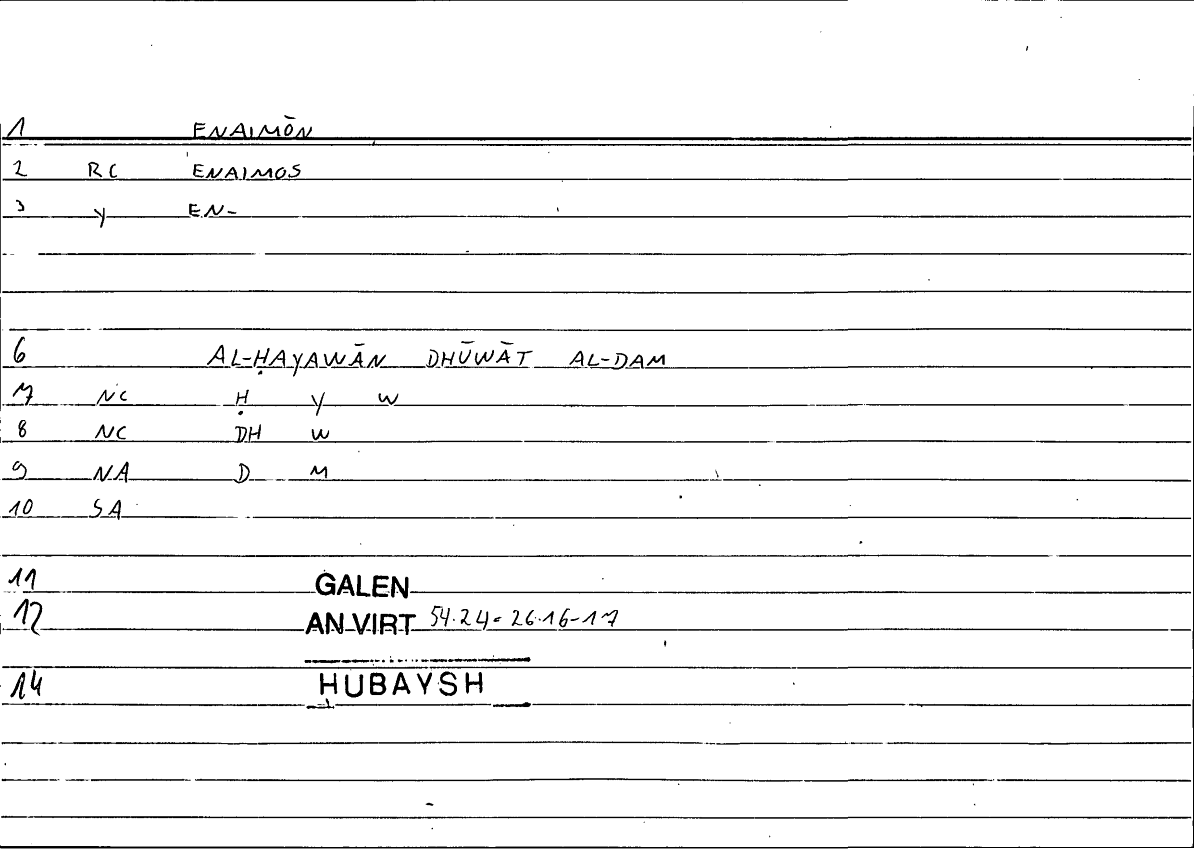 1 ENAIMŌN
2 RC ENAIMOS
3 Y EN-
6 AL-ḤAYAWĀN DHŪWĀT AL-DAM
7 NC Ḥ Y W
8 NC DH W
9 NA D M
10 SA
11 GALEN
12 AN VIRT 54.24 = 26.16-17
14 HUBAYSH